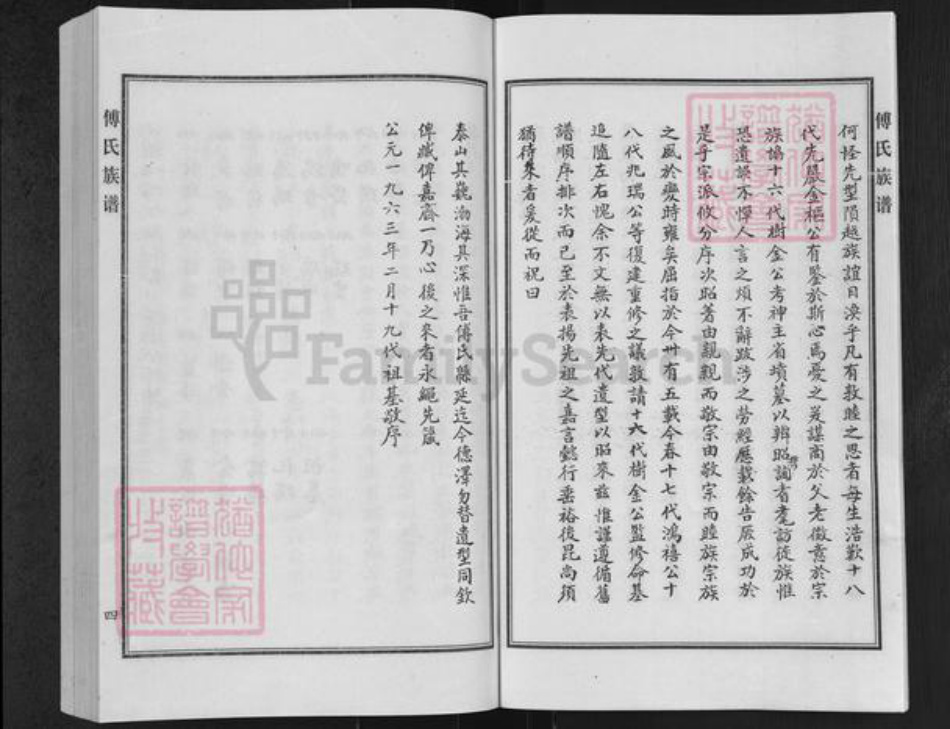 傅氏族谱
何怪先型隕越族誼日渙乎凡有敦睦之思者每生浩歎十八
代先嚴金樞公有鑒於斯心焉憂之爰謀商於父老徵意於宗
族協十六代樹金公考神主省墳墓以辨昭穆詢耆耄訪從族惟
恐遺誤不憚人言之煩不辭跋涉之勞經歷載餘告厥成功於
是乎宗派攸分序次昭著由親親而敬宗由敬宗而睦族宗族
之風於變時雍矣屈指於今卅有五載今春十七代鴻禧公十
八代兆瑞公等復建重修之議敦請十六代樹金公監修命基
追隨左右愧余不文無以表先代遺型以昭來茲惟謹遵備舊
譜順序排次而已至於表揚先祖之嘉言懿行垂裕後昆尚須
猶待來者爰從而祝曰
泰山其巍渤海其深惟吾傅氏綿延迄今德澤勿替遺型同欽
俾臧俾嘉齋一乃心後之來者永繩先箴
公元一九六三年二月十九代祖基敬序
傅氏族谱
四
FamilySearch